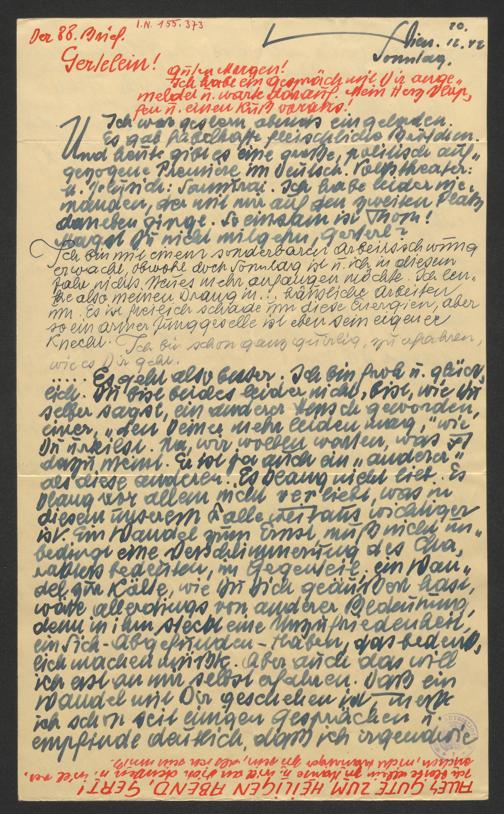 Der 88. Brief.
I.N. 155.373
Wien. 20. 12. 42
Sonntag.
Gertelein!
Guten Morgen!
Ich habe ein Gespräch mit Dir ange=
meldet u. warte darauf. Mein Herz klop,
fen u. einen Kuß voraus!
Ich war gestern abends eingeladen.
Es gab fabelhafte fleischliche
Und heute gibt es eine große, politisch auf=
gezogene Premiere im Deutsch. Volkstheater:
Ich habe leider nie,
manden, der mit mir auf den zweiten Platz
daneben ginge. So einsam ist Thom!
Magst Du nicht mitgehn, Gerterl?
Ich bin mit einem sonderbaren Arbeitsschwung
erwacht, obwohl doch Sonntag ist u. ich in diesem
Jahr nichts Neues mehr anfangen möchte. Ich len,
ke also meinen Drang in ..!.. häusliche Arbeiten
um. Es ist freilich schade um diese Energien, aber
so ein armer Junggeselle ist eben sein eigener
Knecht. Ich bin schon ganz gierig, zu erfahren,
wie es Dir geht.
..... Es geht also besser. Ich bin froh u. glück,
lich. Du bist beides leider nicht, bist, wie Du
selber sagst, ein anderer Mensch geworden,
einer, „den Deiner mehr leiden mag," wie
Du urteilst. Na, wir wollen warten, was
dazu meint. Er ist ja auch ein „anderer"
als diese anderen. Es klang nicht lieb. Es
klang vor allem nicht verliebt, was in
diesem unserem Falle weitaus wichtiger
ist. Ein Wandel zum Ernst, muß nicht un=
bedingt eine Verschlimmerung des Cha,
rakters bedeuten, im Gegenteil. ein Wan=
del zur Kälte, wie Du Dich geäußert hast,
wäre allerdings von anderer Bedeutung,
denn in ihm steckt eine Unzufriedenheit,
ein Sich-Abgefunden-Haben, das bedenk,
lich machen müßte. Aber auch das will
ich erst an mir selbst erfahren. Daß ein
Wandel mit Dir geschehen ist, merke
ich schon seit einigen Gesprächen u.
empfinde deutlich, daß ich irgendwie
ALLES GUTE ZUM HEILIGEN ABEND, GERT!
Ich bleibe allein zu Hause u. will an Dich denken u.